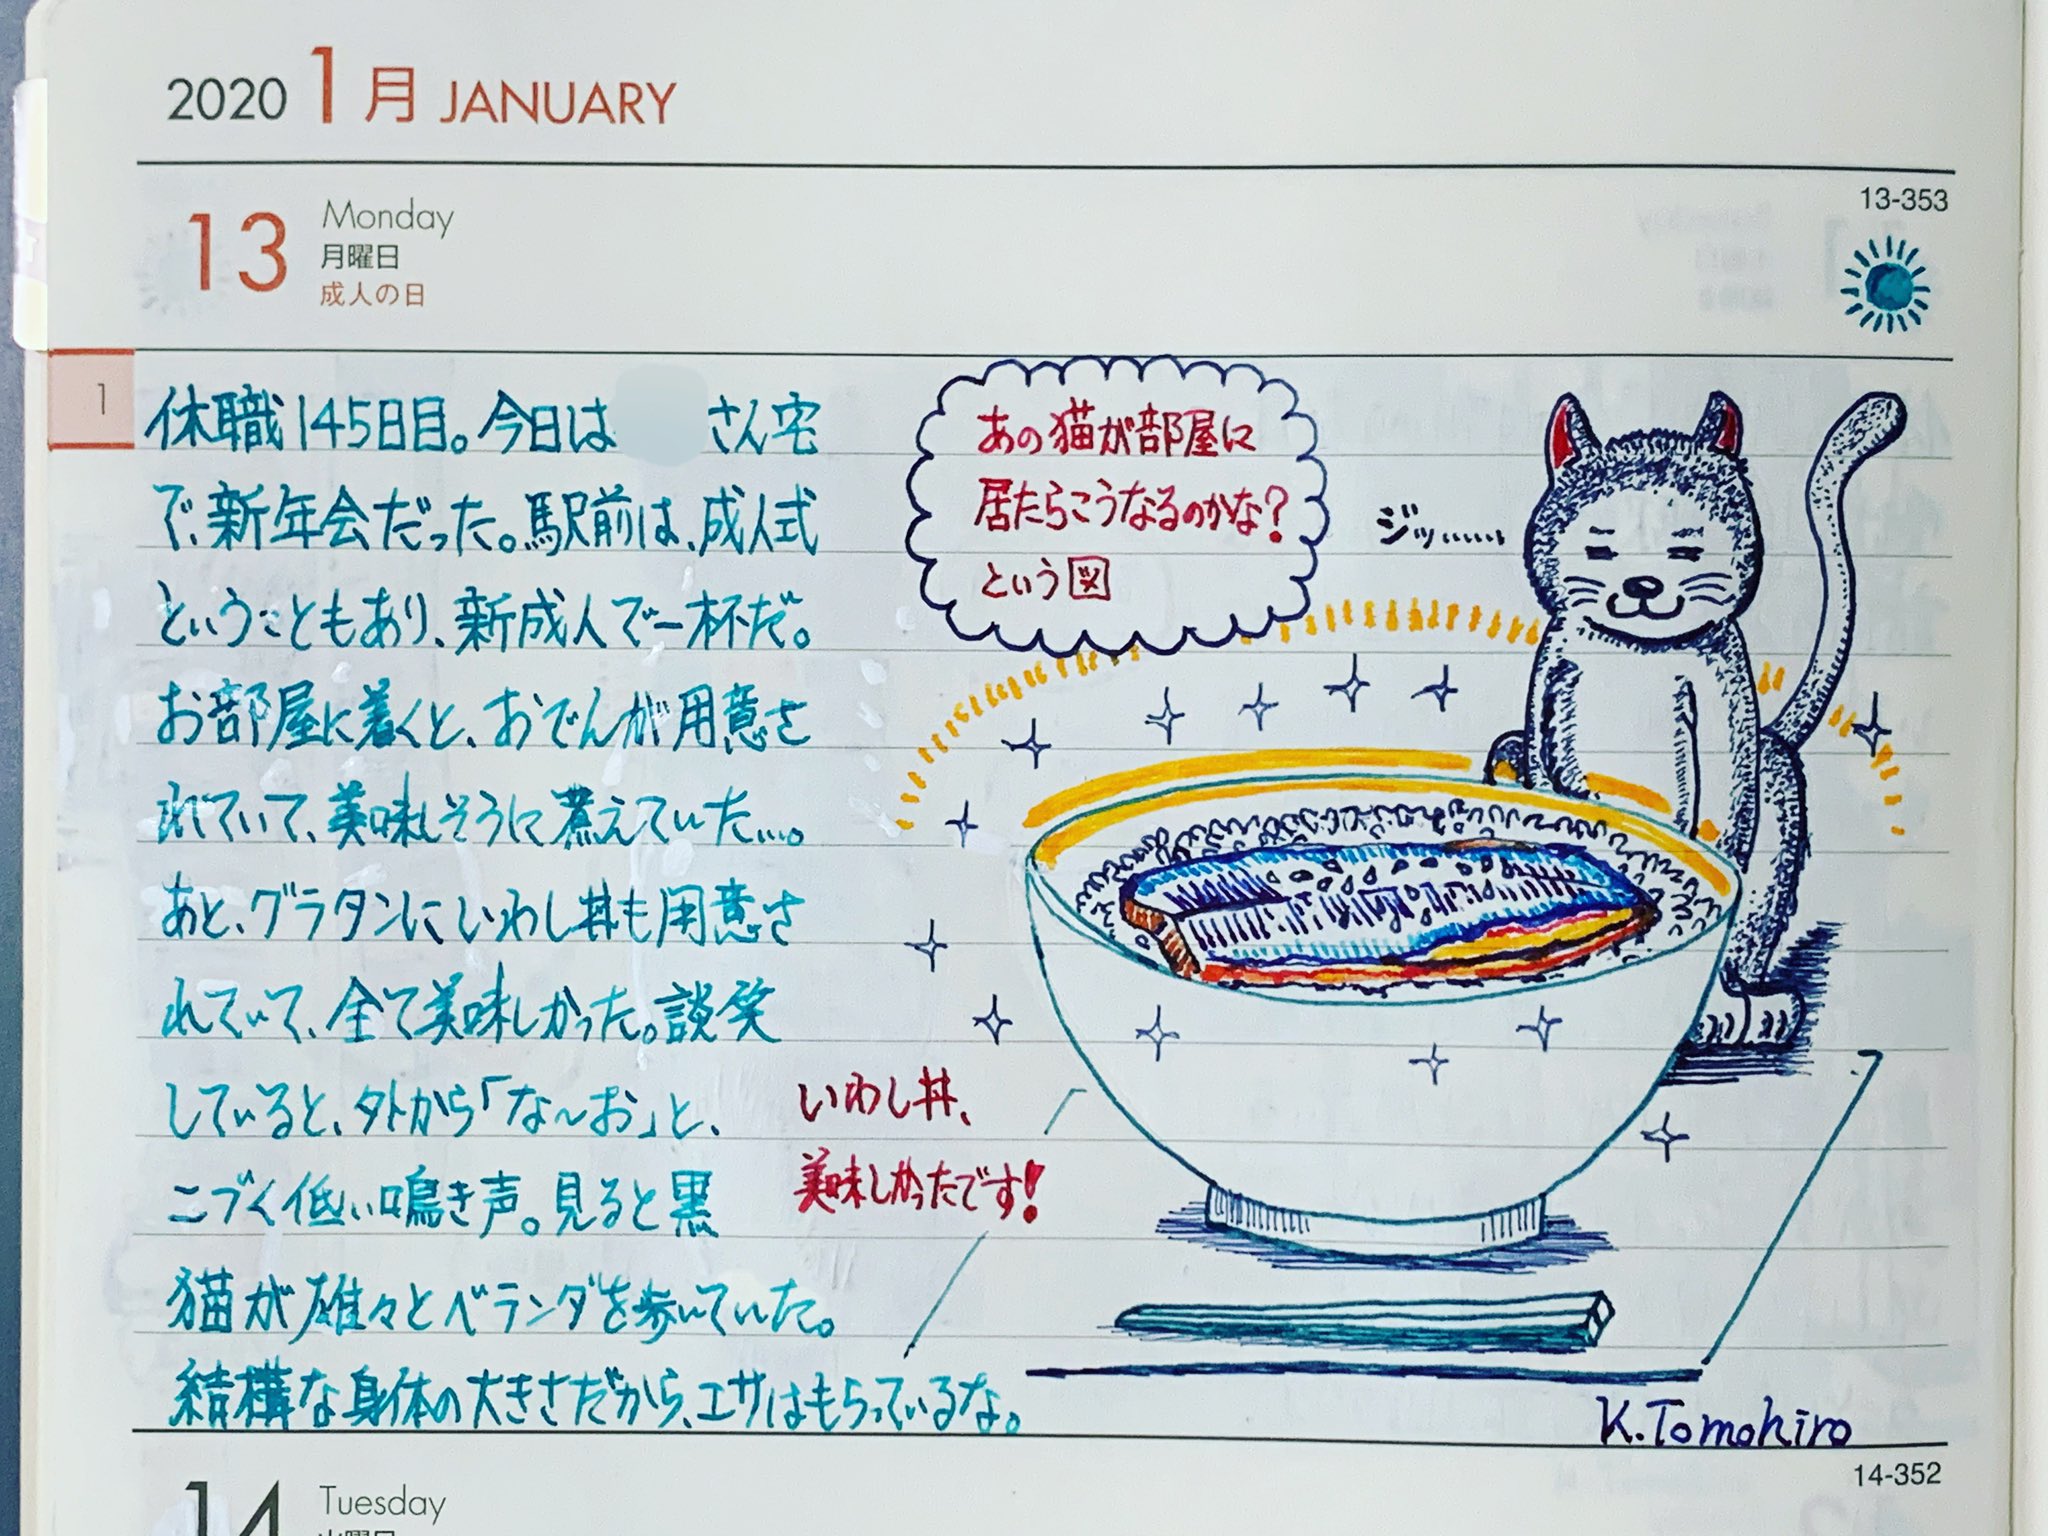 2020 1月 JANUARY
13-353
13 Monday
月曜日
成人の日
1
休職145日目。今日は さん宅
で、新年会だった。駅前は、成人式
ということもあり、新成人で一杯だ。
お部屋に着くと、おでんが用意さ
れていて、美味しそうに煮えていた…。
あと、グラタンにいわし丼も用意さ
れていて、全て美味しかった。談笑
していると、外から「な〜お」と、
こづく低い鳴き声。見ると黒
猫が雄々とベランダを歩いていた。
結構な身体の大きさだから、エサはもらっているな。
あの猫が部屋に
居たらこうなるのかな?
という図
ジッ……
いわし丼、
美味しかったです!
K.Tomohiro
14-352
14 Tuesday